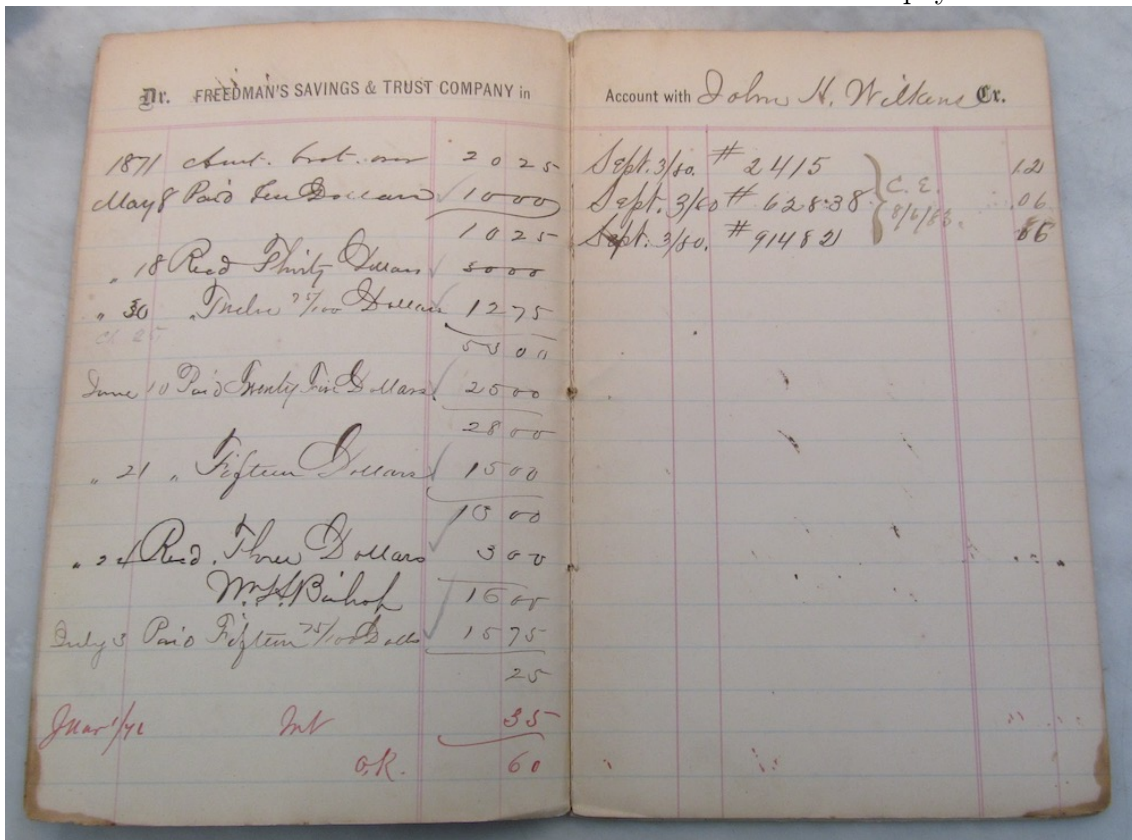 Dr. FREEDMAN'S SAVINGS & TRUST COMPANY in
1871 Amt. brot. over 20 25
May 8 Paid Ten Dollars 10 00
10 25
" 18 Recd Thirty Dollars 30 00
" 30 " Twelve 75/100 Dollars 12 75
53 00
June 10 Paid Twenty Five Dollars 25 00
28 00
" 21 " Fifteen Dollars 15 00
13 00
" 24 Recd. Three Dollars 3 00
Wm H Bishop 16 00
July 3 Paid Fifteen 75/100 Dolls 15 75
25
Int 35
O.K. 60
Account with John H. Wilkins Cr.
Sept. 3/80. # 2415 .12
Sept. 3/80 # 62838 C. E. .06
Sept. 3/80. # 91482 8/6/83.